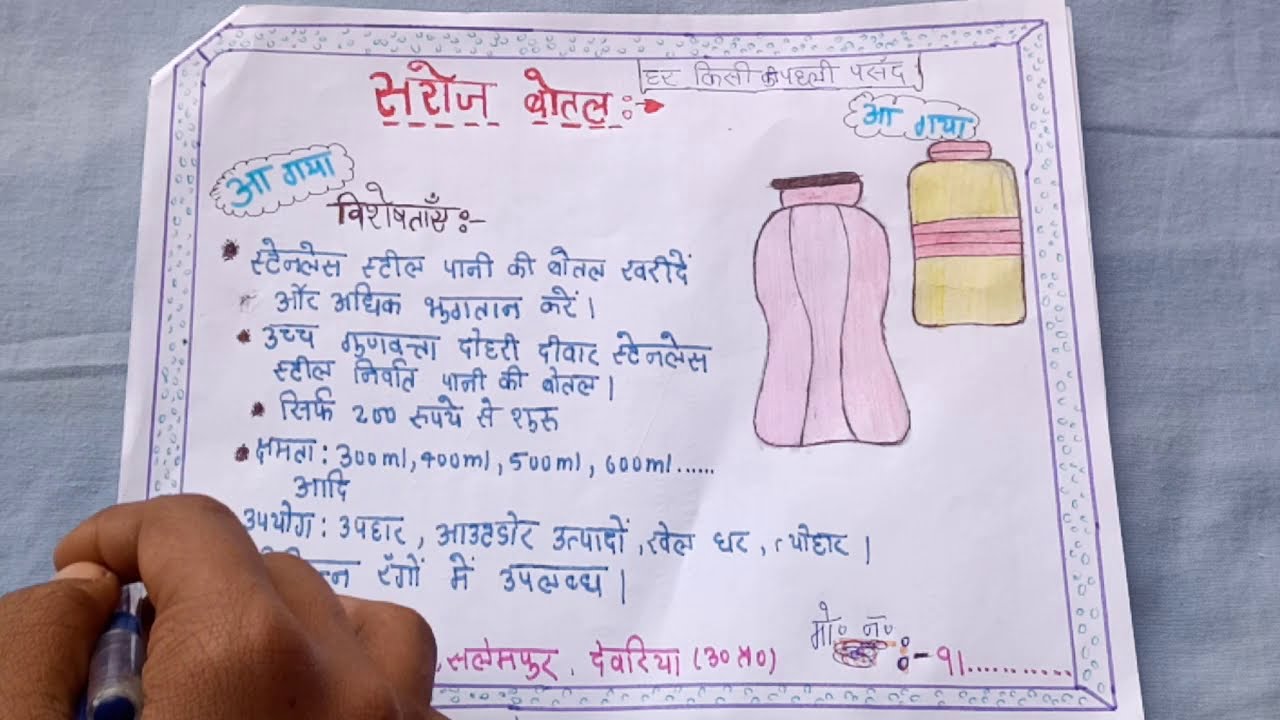 हर किसी की पहली पसँद
सरोज बोतल :→
आ गया
आ गया
विशेषताएँ :-
स्टेनलेस स्टील पानी की बोतल खरीदें
और अधिक भुगतान करें।
उच्च गुणवत्ता दोहरी दीवार स्टेनलेस
स्टील निर्वात पानी की बोतल।
सिर्फ 200 रुपये से शुरू
क्षमता : 300ml, 400ml, 500ml, 600ml......
आदि
उपयोग : उपहार, आउटडोर उत्पादों, खेल घर, त्योहार।
रँगों में उपलब्ध।
मो० न०
,सलेमपुर, देवरिया (उ० प्र०) :- 91...........